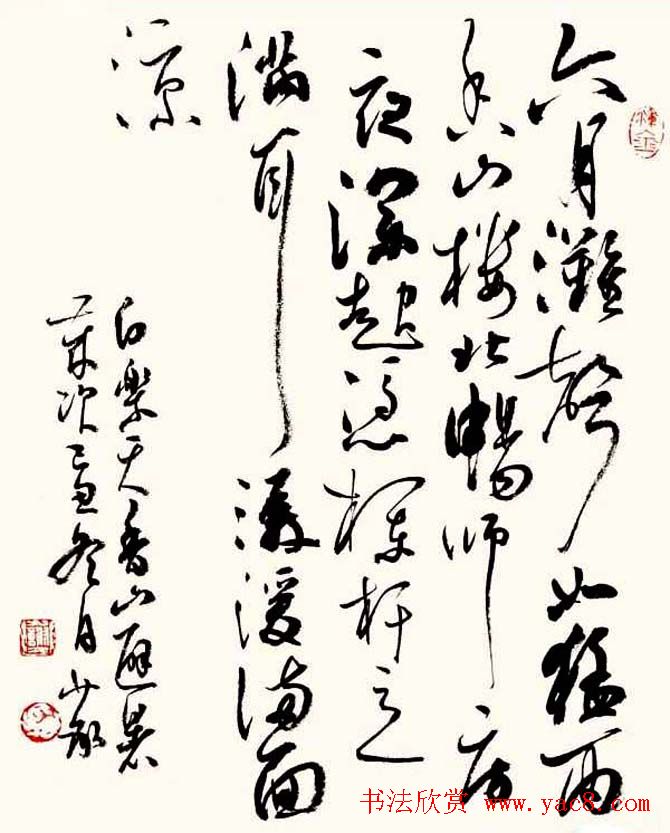 六月灘聲如猛雨
香山樓北暢師房
夜深起憑欄杆立
滿耳潺湲滿面
凉
白樂天香山避暑
歲次己丑冬月
书法欣赏 www.yac8.com